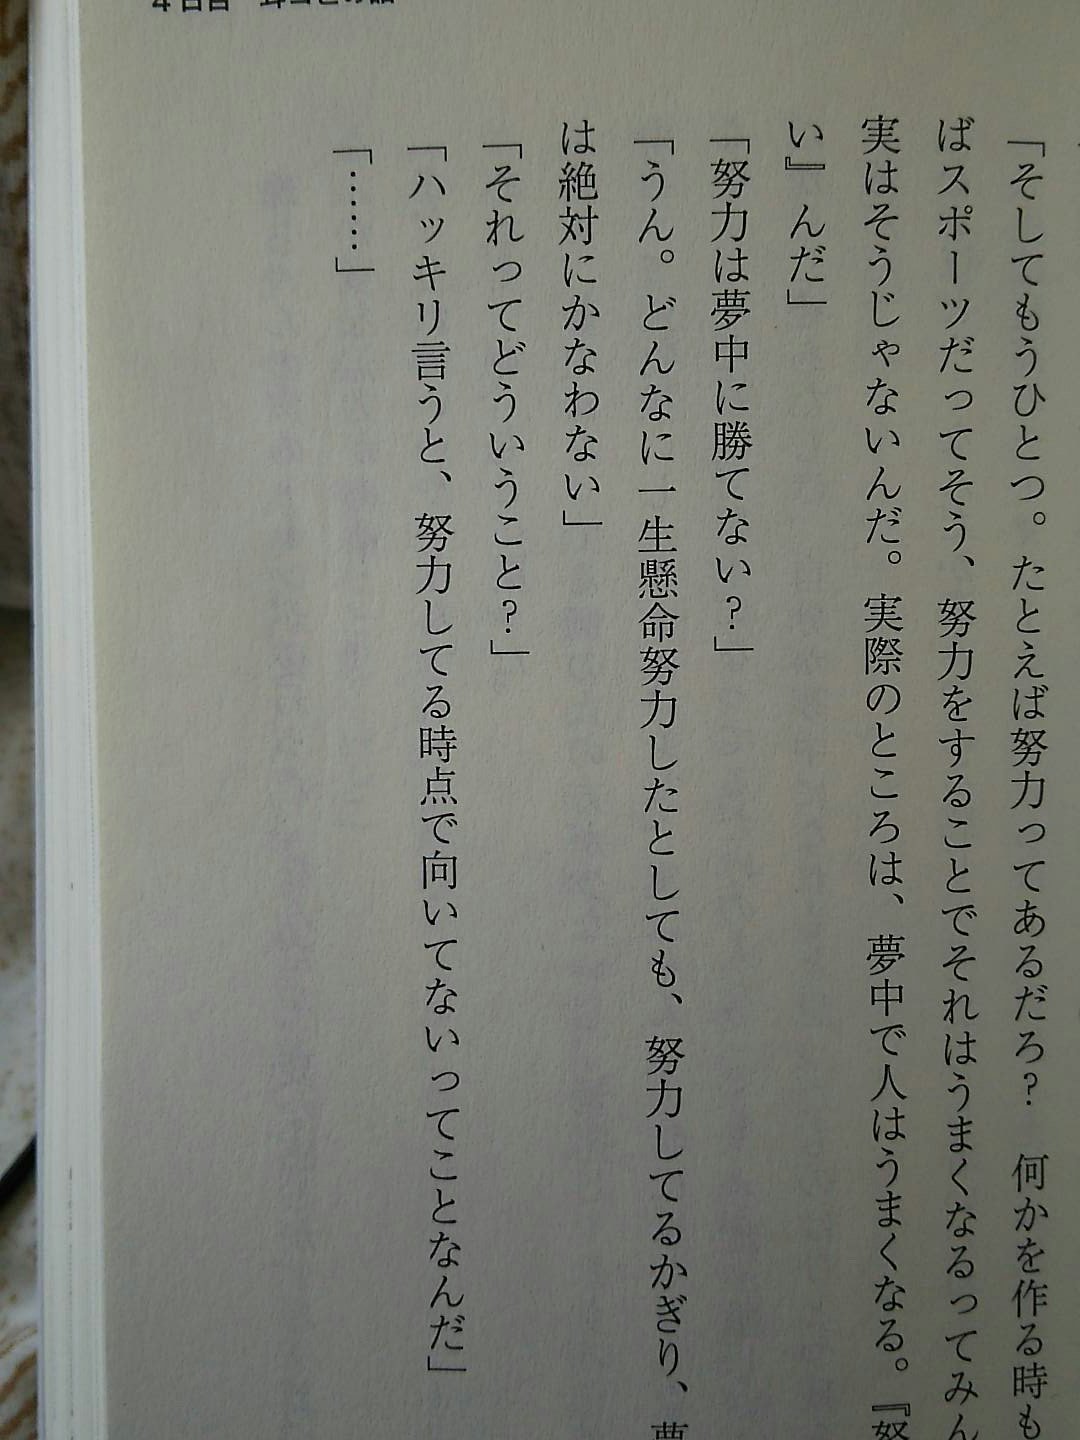 「そしてもうひとつ。たとえば努力ってあるだろ？　何かを作る時も
ばスポーツだってそう、努力をすることでそれはうまくなるってみん
実はそうじゃないんだ。実際のところは、夢中で人はうまくなる。『努
い』んだ」
「努力は夢中に勝てない？」
「うん。どんなに一生懸命努力したとしても、努力してるかぎり、夢
は絶対にかなわない」
「それってどういうこと？」
「ハッキリ言うと、努力してる時点で向いてないってことなんだ」
「……」